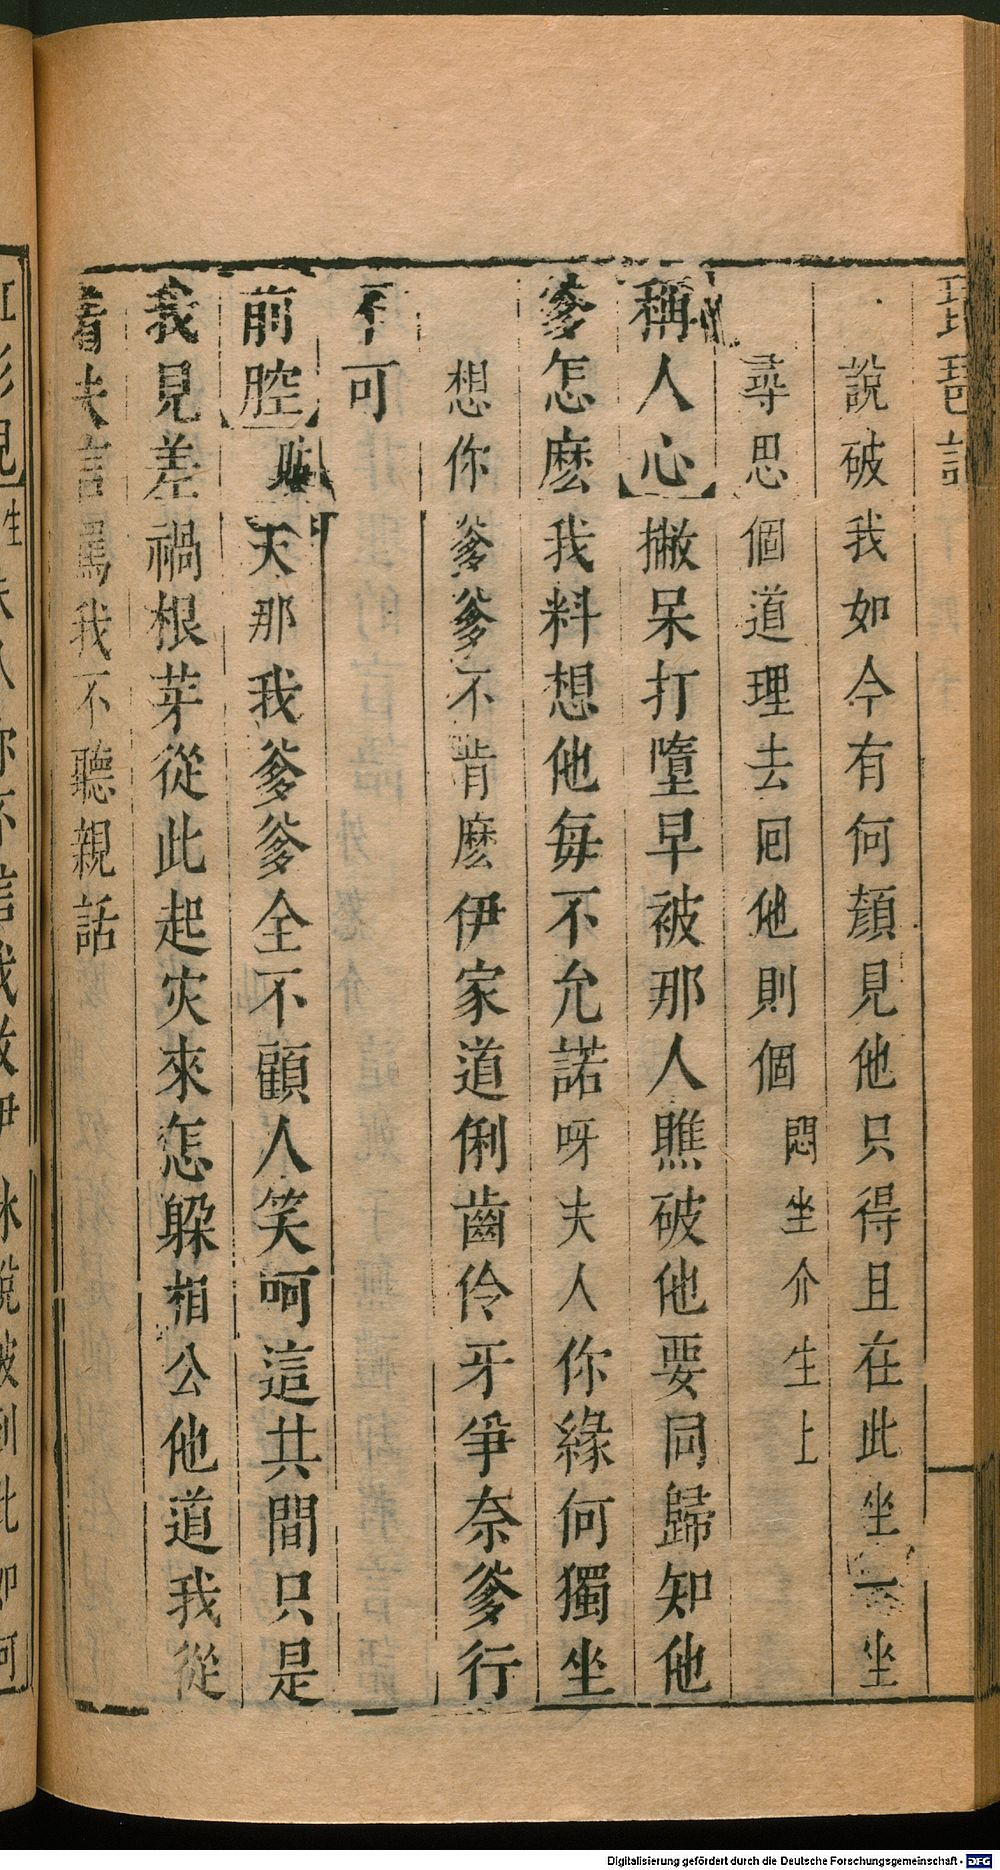 琵琶記
說破我如今有何顔見他只得且在此坐一坐
尋思個道理去囘他則個 悶坐介生上
稱人心 撇呆打墮早被那人瞧破他要同歸知他
爹怎麽我料想他每不允諾呀夫人你緣何獨坐
想你爹爹不肯麽伊家道俐齒伶牙爭奈爹行
不可
前腔 貼 天那我爹爹全不顧人笑呵這共間只是
我見差禍根芽從此起灾來怎躱相公他道我從
着夫言罵我不聽親話
Digitalisierung gefördert durch die Deutsche Forschungsgemeinschaft - DFG